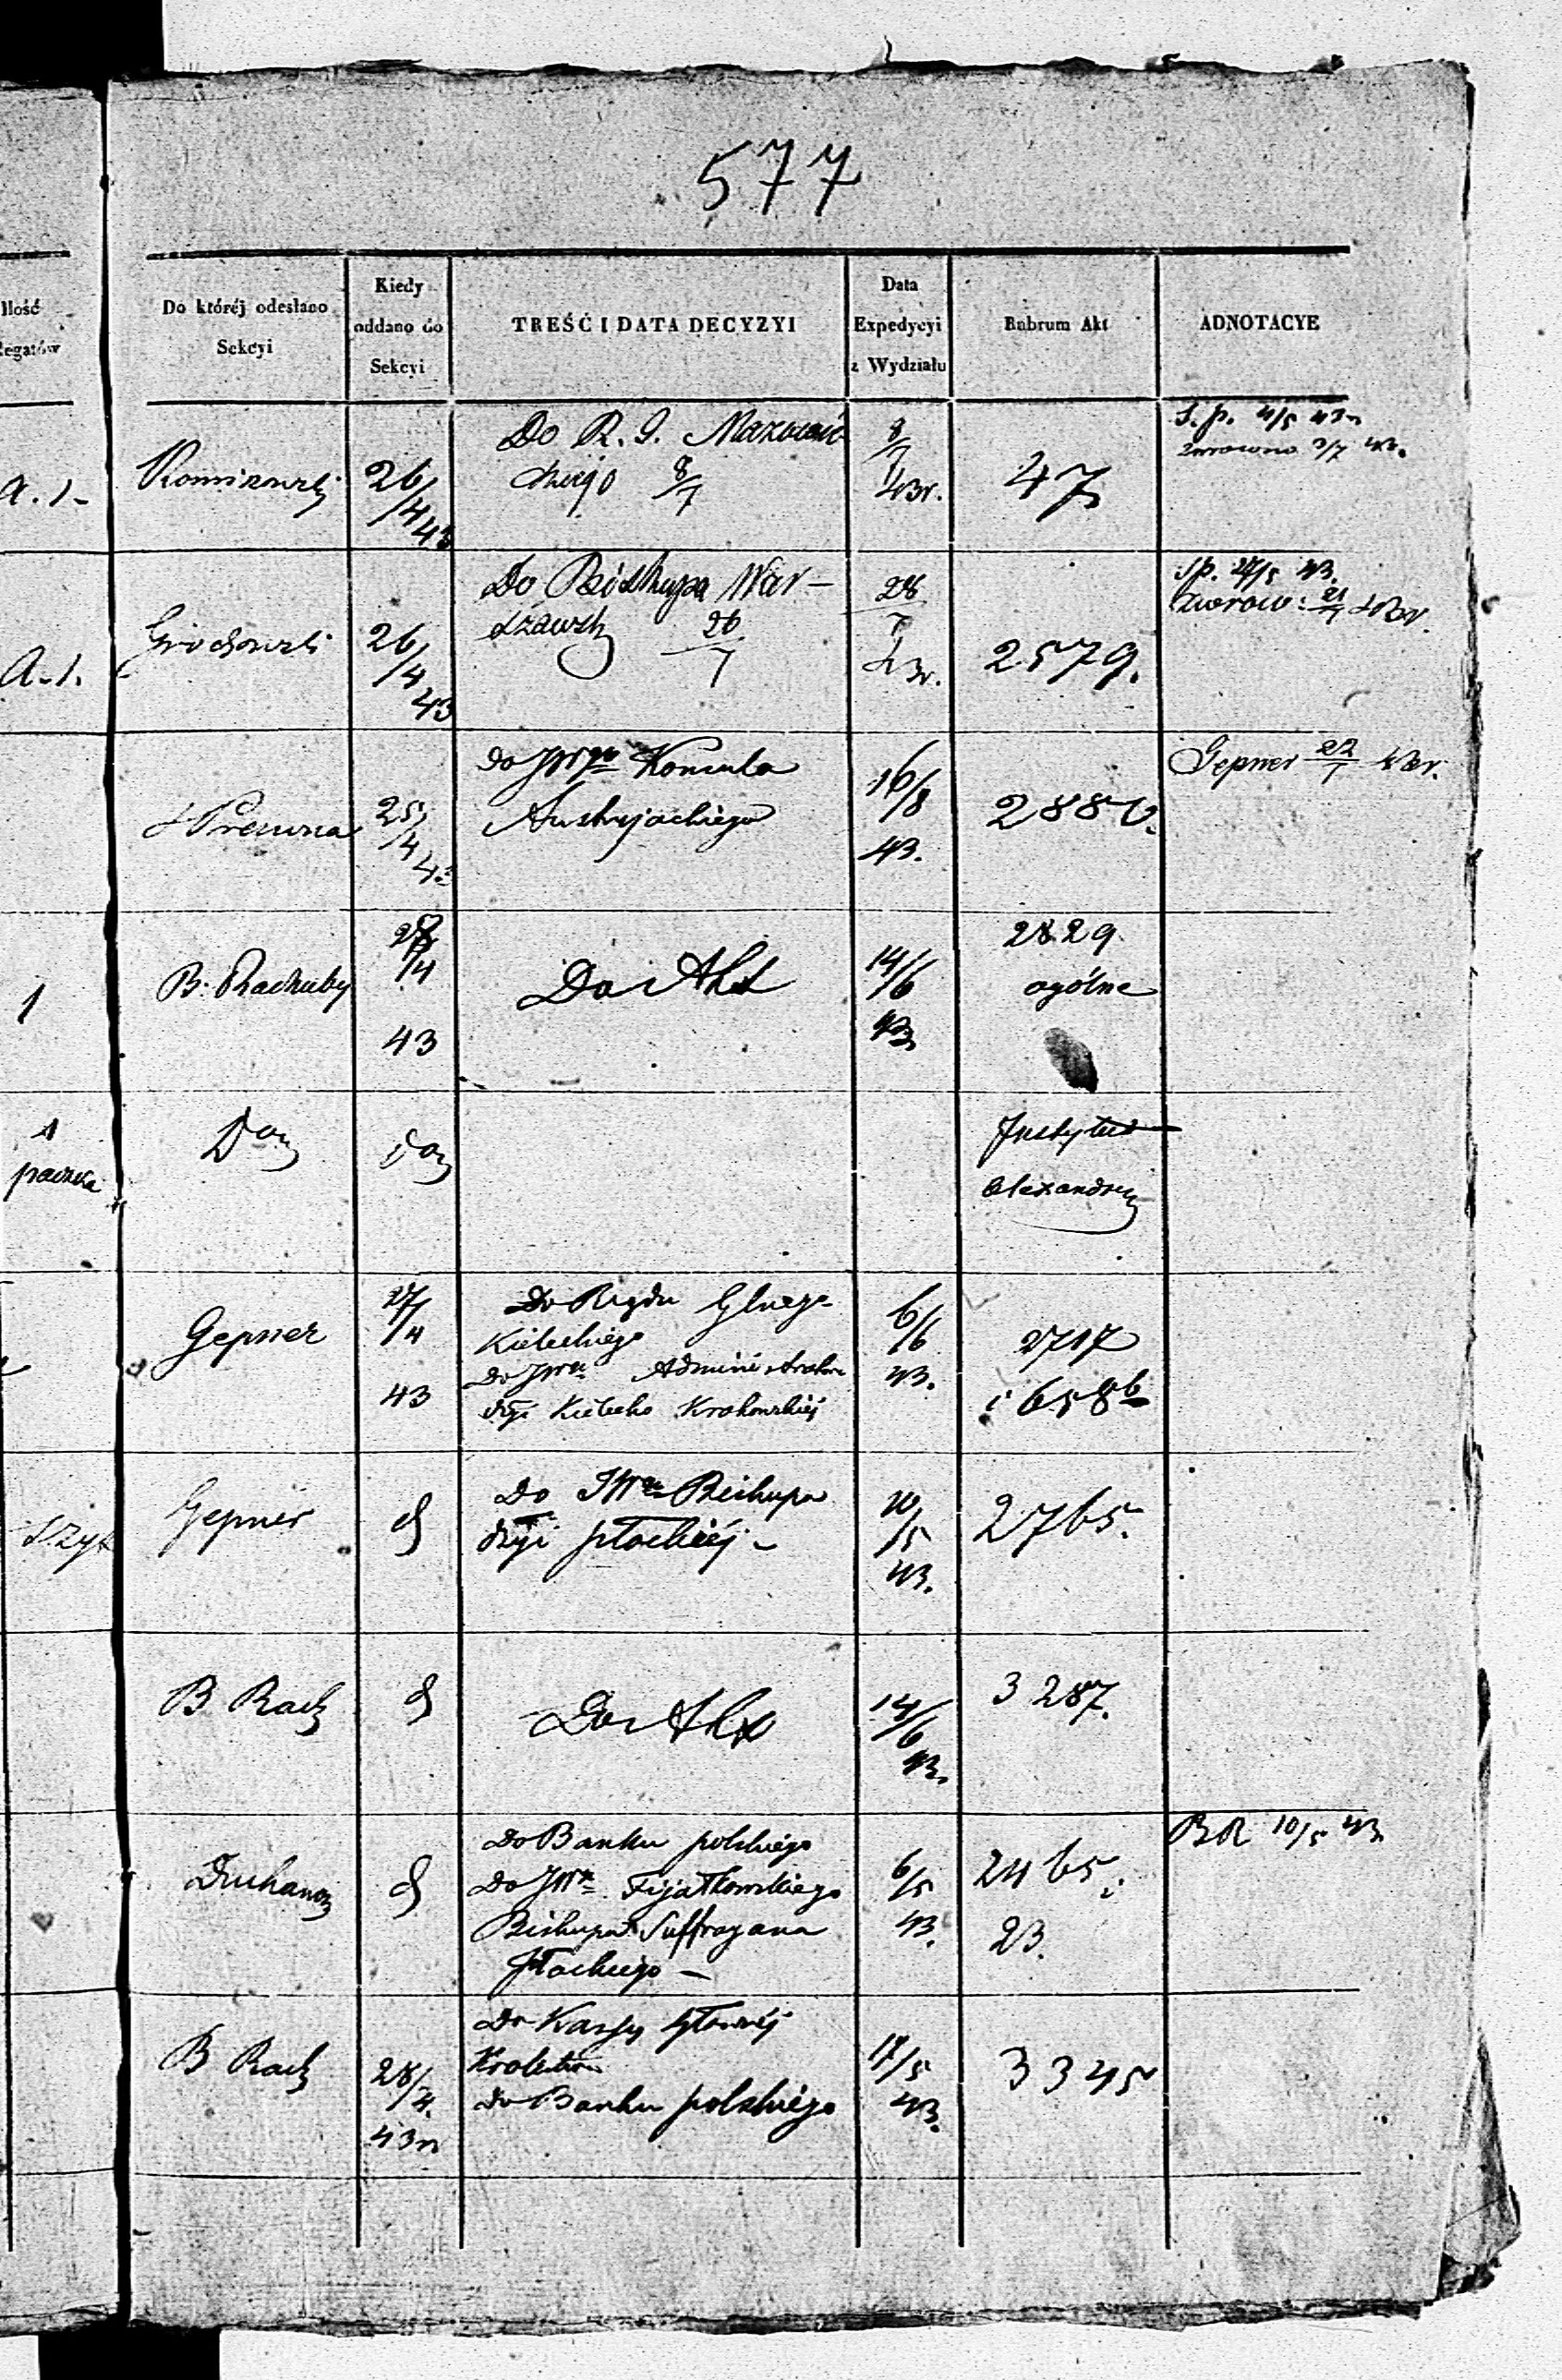 577
Ilość
Do któréj odesłano
Sekcyi
Kiedy
oddano do
Sekcyi
TREŚĆ I DATA DECYZYI
Data
Expedycyi
z Wydziału
Rubrum Akt
ADNOTACYE
a. 1-
26/4 43
Do R. G. Mazowie
ckiego 8/7
8/7
43r.
47
S. p. 4/5 43r
3/7 43.
A. 1.
Grochowski
26/4 43
Do Biskupa War-
szawsk 26/7
28/7
43r.
2579.
Sp. 27/5 43.
43r.
25/4 43
do JW Konsula
Austryjackiego
16/8
43.
2880.
Gepner 22/7 43r.
1
B. Rachuby
/4
43
Do Akt
14/6
43
2829
ogólne
1
paczka
Don
don
Instytut
Alexandry
Gepner
27/4
43
Do Rządu Glnego
Kieleckiego
do JWo Administratora
dyi Kielecko Krakowskiej
6/6
43.
2717
i 658b
szyt
Gepner
d
Do JWo Biskupa
dyi płockiéj -
10/5
43.
2765.
B Rach
d
Do Akt
14/6
43.
3287.
d
Do Banku polskiego
Do JWo Fijałkowskiego
Biskupa Suffragana
Płockiego -
6/5
43.
2465 i
23.
BR 10/5 43
B Rach
28/4.
43r
Do Kassy głównéj
Królestwa
do Banku polskiego
17/5
43.
3345